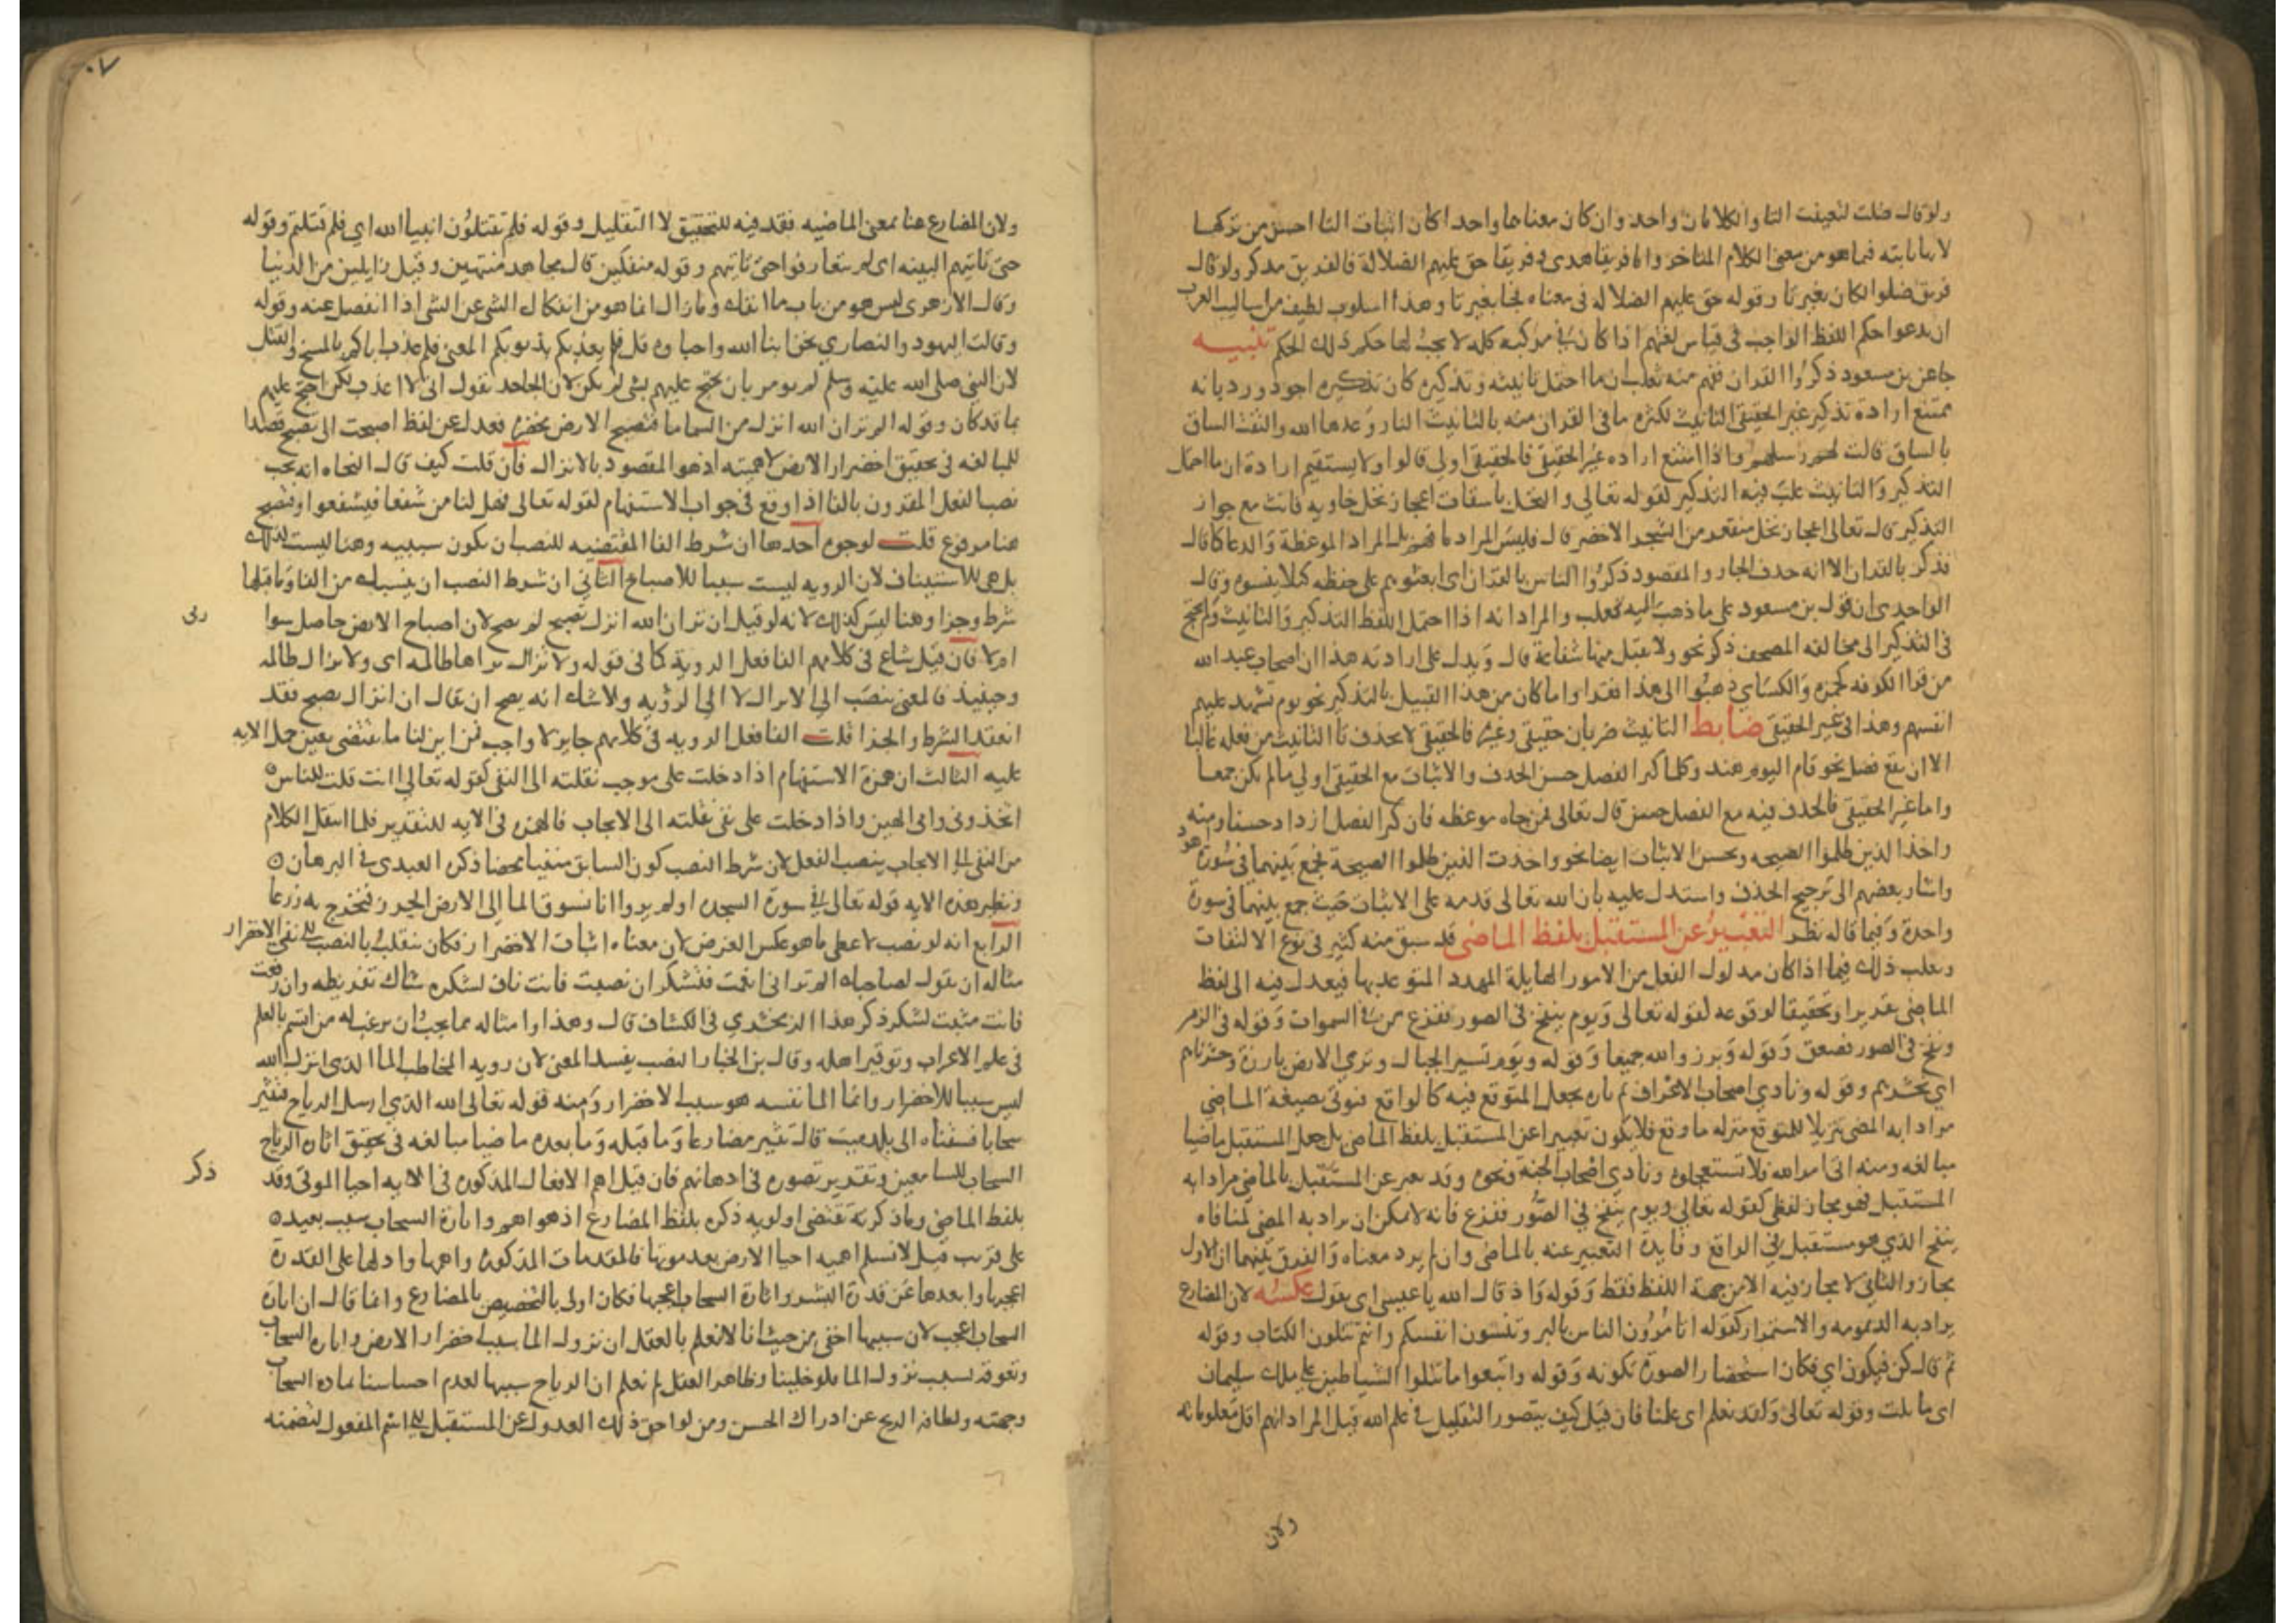 ولو قال ضلت لتعينت التا والكلامان واحد وان كان معناهما واحدا كان اثبات التا احسن من تركها
لانها ثابته فيما هو من معنى الكلام المتاخر واما فريقا هدى وفريقا حق عليهم الضلالة فالفريق مذكر ولو قال
فريق ضلوا لكان بغير تا وقوله حق عليهم الضلاله في معناه فجا بغير تا وهذا اسلوب لطيف من اساليب العرب
ان يدعوا حكم اللفظ الواجب في قياس لغتهم اذا كان في مركبه كله لا يجب لها حكم ذلك الحكم تنبيه
جا عن بن مسعود ذكروا القران ففهم منه ثعلب ان ما احتمل تانيثه وتذكيره كان تذكيره اجود ورد بانه
يمتنع ارادة تذكير غير الحقيقي التانيث لكثره ما في القران منه بالتانيث النار وعدها الله والتفت الساق
بالساق قالت لهم رسلهم واذا امتنع اراده غير الحقيقي فالحقيقي اولى قالوا ولا يستقيم ارادة ان ما احتمل
التذكير والتانيث غلب فيه التذكير لقوله تعالى والنخل باسقات اعجاز نخل خاويه فانث مع جواز
التذكير قال تعالى اعجاز نخل منقعر من الشجر الاخضر قال فليس المراد ما فهم بل المراد الموعظة والدعا كما قال
فذكر بالقران الا انه حذف الجار والمقصود ذكروا الناس بالقران اى ابعثوهم على حفظه كيلا ينسوه وقال
الواحدى ان قول بن مسعود على ما ذهب اليه ثعلب والمراد انه اذا احتمل اللفظ التذكير والتانيث ولم يحتج
في التذكير الى مخالفه المصحف ذكر نحو ولا يقبل منها شفاعة قال ويدل على ارادته هذا ان اصحاب عبد الله
من قرا الكوفه كحمزه والكساي ذهبوا الى هذا فقراوا ما كان من هذا القبيل بالتذكير نحو يوم تشهد عليهم
انفسهم وهذا في غير الحقيقي ضابط التانيث ضربان حقيقي وغيره فالحقيقي لا تحذف تا التانيث من فعله غالبا
الا ان يقع فصل نحو قام اليوم هند وكلما كبر الفصل حسن الحذف والاثبات مع الحقيقي اولى ما لم يكن جمعا
واما غير الحقيقي فالحذف فيه مع الفصل حسن قال تعالى فمن جاه موعظه فان كبر الفصل ازداد حسنا ومنه
واخذ الذين ظلموا الصيحه ويحسن الاثبات ايضا نحو واخذت الذين ظلموا الصيحة فجمع بينهما في سورة هود
واشار بعضهم الى ترجيح الحذف واستدل عليه بان الله تعالى قدمه على الاثبات حيث جمع بينهما في سورة
واحدة وفيما قاله نظر التعبير عن المستقبل بلفظ الماضى قد سبق منه كثير في نوع الالتفات
ويغلب ذلك فيما اذا كان مدلول الفعل من الامور الهايلة المهدد المتوعد بها فيعدل فيه الى لفظ
الماضى تقريرا وتحقيقا لوقوعه لقوله تعالى ويوم ينفخ في الصور ففزع من في السموات وقوله في الزمر
ونفخ في الصور فصعق وقوله وبرزوا لله جميعا وقوله ويوم تسير الجبال وترى الارض بارزة وحشرناهم
اي نحشرهم وقوله ونادى اصحاب الاعراف ثم تارة يجعل المتوقع فيه كالواقع فيوتى بصيغة الماضى
مرادا به المضى تنزيلا للمتوقع منزله ما وقع فلا يكون تعبيرا عن المستقبل بلفظ الماضى بل جعل المستقبل ماضيا
مبالغه ومنه اتى امر الله فلا تستعجلوه ونادى اصحاب الجنة ونحوه وقد يعبر عن المستقبل بالماضى مرادا به
المستقبل فهو مجاز لفظى كقوله تعالى ويوم ينفخ في الصور ففزع فانه لا يمكن ان يراد به المضى لمنافاه
ينفخ الذي هو مستقبل في الواقع وفايده التعبير عنه بالماضى وان لم يرد معناه والفرق بينهما ان الاول
مجاز والثانى لا مجاز فيه الا من جهة اللفظ فقط وقوله واذ قال الله يا عيسى اى يقول عكسه لان المضارع
يراد به الديمومه والاستمرار كقوله اتامرون الناس بالبر وتنسون انفسكم وانتم تتلون الكتاب وقوله
ثم قال كن فيكون اي فكان استحضارا لصورة تكونه وقوله واتبعوا ما تتلوا الشياطين على ملك سليمان
اى ما تلت وقوله تعالى ولقد نعلم اى علمنا فان قيل كيف يتصور التقليل في علم الله قيل المراد انهم اقل معلوماته
ولان
ولان المضارع هنا بمعنى الماضيه فقد فيه للتحقيق لا التقليل وقوله فلم تقتلون انبيا الله اي فلم قتلتم وقوله
حتى تاتيهم البينه اى لم يتعارفوا حتى تاتيهم وقوله منفكين قال مجاهد منتهين وقيل زايلين من الدنيا
وقال الازهرى ليس هو من باب ما انفك وما زال انما هو من انفكاك الشى عن الشى اذا انفصل عنه وقوله
وقالت اليهود والنصارى نحن ابنا الله واحباوه قل فلم يعذبكم بذنوبكم المعنى فلم عذب اباكم بالمسخ والقتل
لان النبى صلى الله عليه وسلم لم يومر بان يحتج عليهم بشى لم يكن لان الجاحد يقول انى لا اعذب لكن احتج عليهم
بما قد كان وقوله الم تر ان الله انزل من السما ما فتصبح الارض مخضره فعدل عن لفظ اصبحت الى تصبح قصدا
للمبالغه في تحقيق اخضرار الارض لاهميته اذ هو المقصود بالانزال فان قلت كيف قال النحاه انه يجب
نصب الفعل المقرون بالفا اذا وقع في جواب الاستفهام لقوله تعالى فهل لنا من شفعا فيشفعوا وتصبح
هنا مرفوع قلت لوجوه احدها ان شرط الفا المقتضيه للنصب ان يكون سببيه وهنا ليست كذلك
بل هى للاستيناف لان الرويه ليست سببا للاصباح الثانى ان شرط النصب ان ينسبك من الفا وما قبلها
شرط وجزا وهنا ليس كذلك لانه لو قيل ان تر ان الله انزل تصبح لم يصح لان اصباح الارض حاصل سوا
رئى
ام لا فان قيل شاع في كلامهم الغا فعل الروية كما في قوله ولا تزال تراها ظالمه اى ولا تزال ظالمه
وحينيذ فالمعنى ينصب الى الانزال لا الى الرؤيه ولا شك انه يصح ان يقال ان انزل تصبح فقد
انعقد الشرط والجزا قلت الغا فعل الرويه في كلامهم جايز لا واجب فمن اين لنا ما يقتضى تعين حمل الايه
عليه الثالث ان همزة الاستفهام اذا دخلت على موجب نقلته الى النفى كقوله تعالى اانت قلت للناس
اتخذونى وامى الهين واذا دخلت على نفى نقلته الى الايجاب فالهمزه في الايه للتقدير فلما انتقل الكلام
من النفى الى الايجاب ينصب الفعل لان شرط النصب كون السابق منفيا محضا ذكره العبدى في البرهان
ونظير هذه الايه قوله تعالى في سورة السجده اولم يروا انا نسوق الما الى الارض الجرز فنخرج به زرعا
الرابع انه لو نصب لاعطى ما هو عكس الغرض لان معناه اثبات الاخضرار فكان ينقلب بالنصب الى نفى الاخضرار
مثاله ان تقول لصاحبك الم تر انى انعمت فتشكر ان نصبت فانت ناف لشكره شاك تفريطه وان رفعت
فانت مثبت لشكر ذكر هذا الزمخشري في الكشاف قال وهذا وامثاله مما يجب ان يرغب له من اتسم بالعلم
في علم الاعراب وتوقير اهله وقال بن الخباز النصب يفسد المعنى لان رويه المخاطب الما الذى انزله الله
ليس سببا للاخضرار وانما الما نفسه هو سبب الاخضرار ومنه قوله تعالى الله الذي ارسل الرياح فتثير
سحابا فسقناه الى بلد ميت قال تثير مضارعا وما قبله وما بعده ماضيا مبالغه في تحقيق اثاره الرياح
السحاب للسامعين وتقدير تصوره في اذهانهم فان قيل اهم الافعال المذكوره في الايه احيا الموتى وقد
ذكر
بلفظ الماضى وما ذكرته يقتضى اولويه ذكره بلفظ المضارع اذ هو اهم واثارة السحاب سبب بعيده
على قريب قيل لا نسلم اهميه احيا الارض بعد موتها فالمقدمات المذكوره واهمها وادلها على القدرة
اعجبها وابعدها عن قدرة البشر واثارة السحاب اعجبها فكان اولى بالتخصيص بالمضارع وانما قال ان اثارة
السحاب اعجب لان سببها اخفى من حيث انا لا نعلم بالعقل ان نزول الما سبب اخضرار الارض واثاره السحاب
وتعوقه لسبب نزول الما فلو خلينا وظاهر العقل لم نعلم ان الرياح سببها لعدم احساسنا بمادة السحاب
وجهته ولطافه الريح عن ادراك الحس ومن لواحق ذلك العدول عن المستقبل الى اسم المفعول لتضمنه